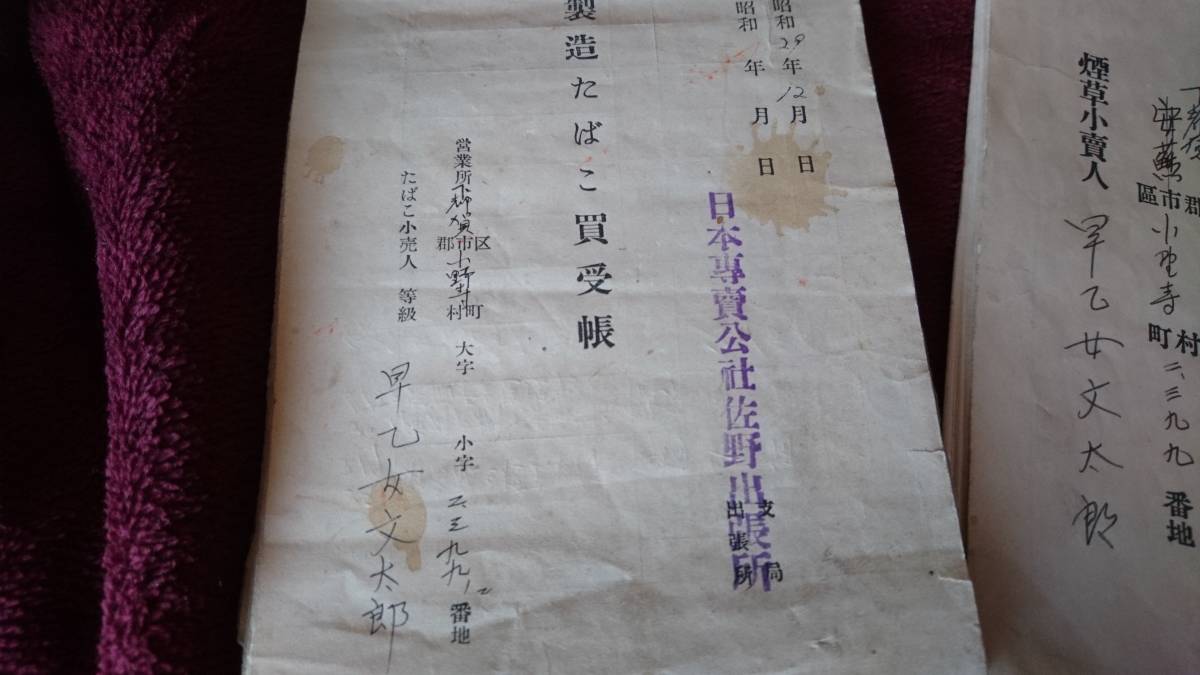 昭和29年12月 日
昭和 年 月 日
日本專賣公社佐野出張所
支局
出張所
製造たばこ買受帳
営業所 下都賀郡市区小野寺村町 大字 小字 二、三九九ノ二番地
たばこ小売人 等級 早乙女文太郎
安蘇郡市區小野寺村町二、三九九番地
煙草小賣人 早乙女文太郎